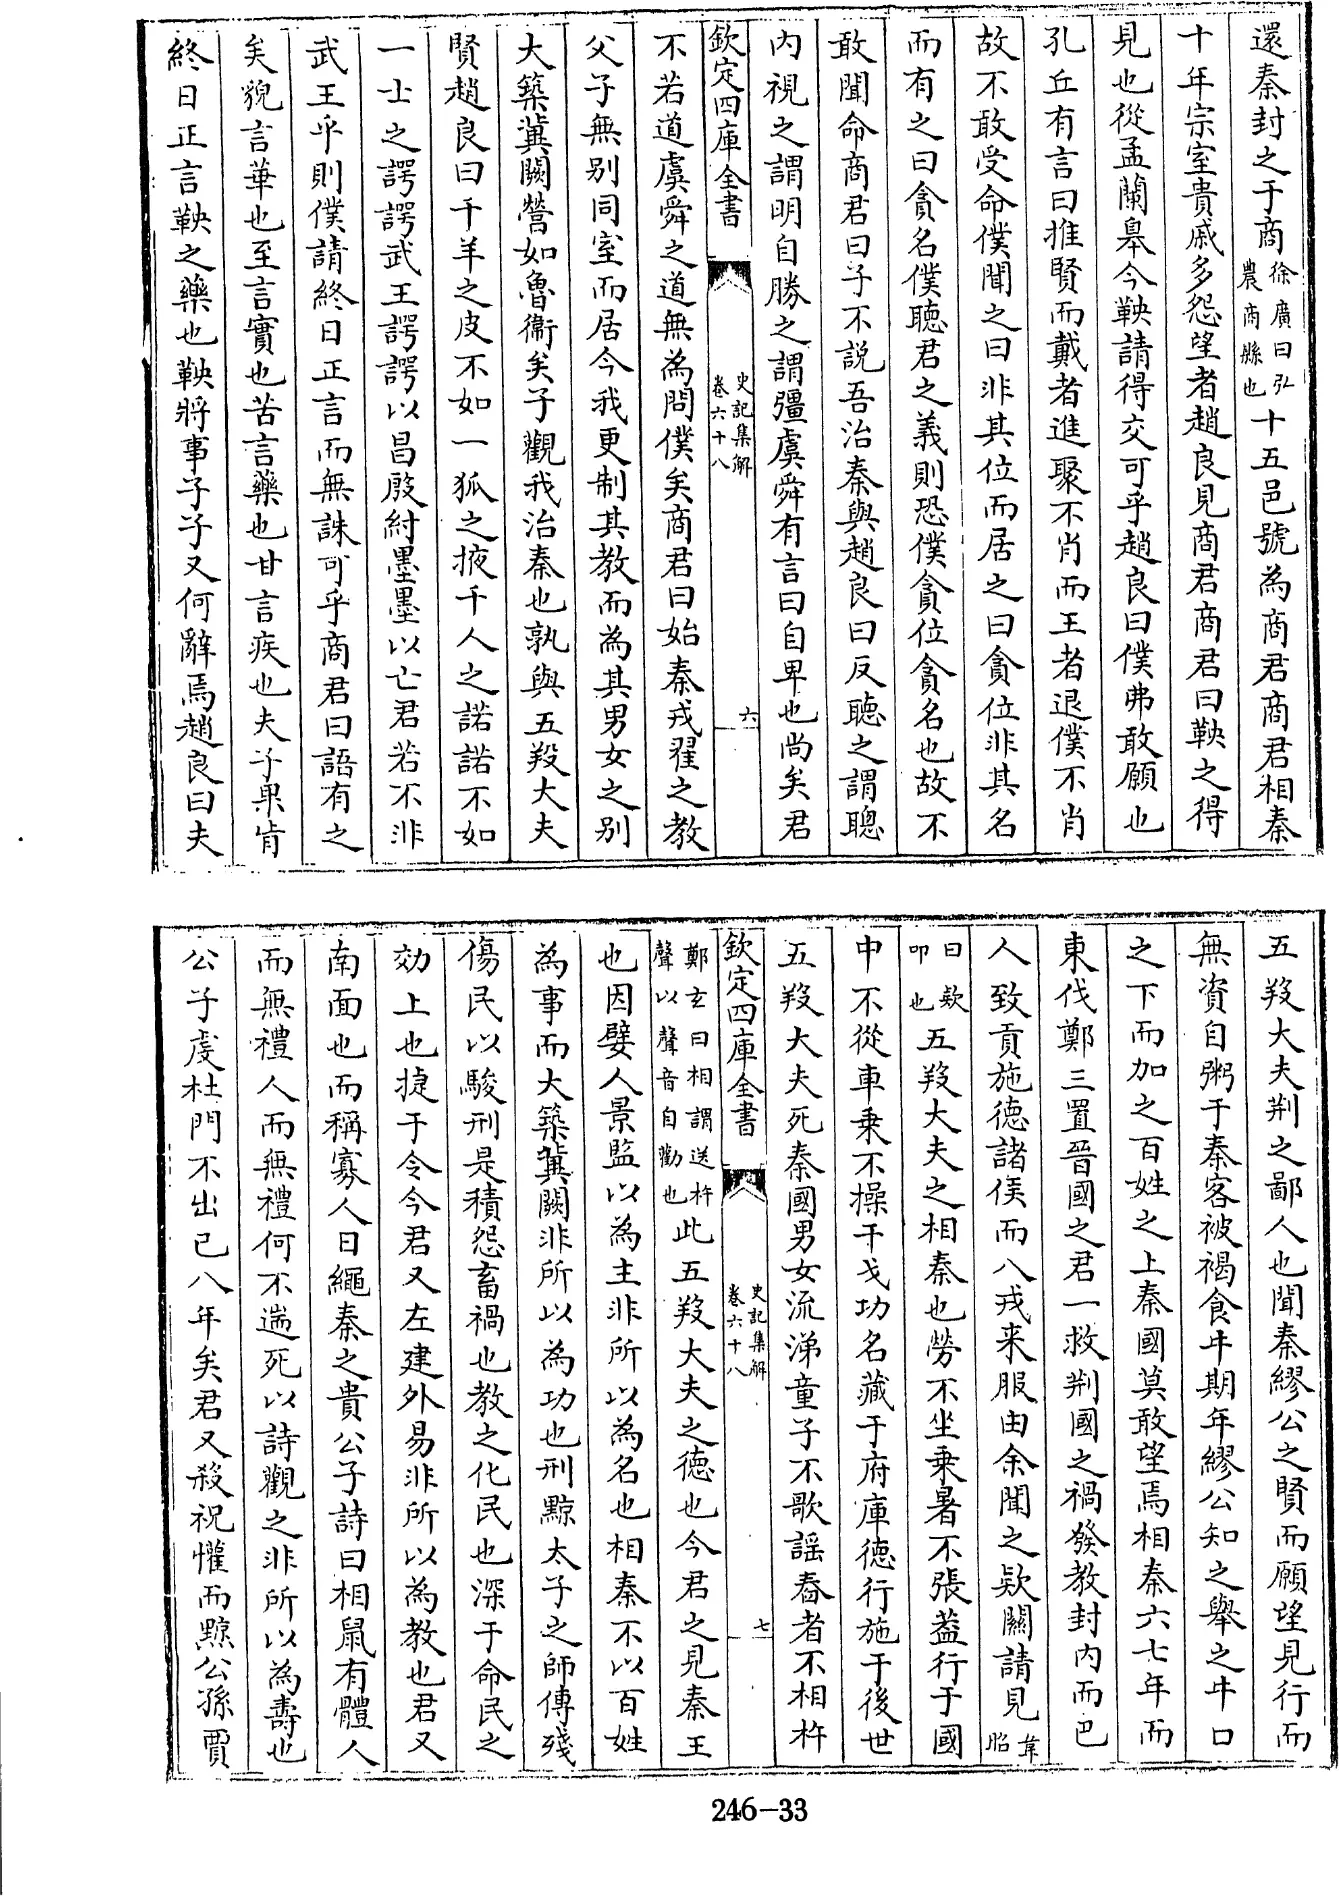 還秦封之于商徐廣曰弘農商縣也十五邑號為商君商君相秦
十年宗室貴戚多怨望者趙良見商君商君曰鞅之得
見也從孟蘭臯今鞅請得交可乎趙良曰僕弗敢願也
孔丘有言曰推賢而戴者進聚不肖而王者退僕不肖
故不敢受命僕聞之曰非其位而居之曰貪位非其名
而有之曰貪名僕聽君之義則恐僕貪位貪名也故不
敢聞命商君曰子不說吾治秦與趙良曰反聽之謂聰
內視之謂明自勝之謂彊虞舜有言曰自卑也尚矣君
欽定四庫全書
史記集解
卷六十八
六
不若道虞舜之道無為問僕矣商君曰始秦戎翟之教
父子無別同室而居今我更制其教而為其男女之別
大築冀闕營如魯衛矣子觀我治秦也孰與五羖大夫
賢趙良曰千羊之皮不如一狐之掖千人之諾諾不如
一士之諤諤武王諤諤以昌殷紂墨墨以亡君若不非
武王乎則僕請終日正言而無誅可乎商君曰語有之
矣貌言華也至言實也苦言藥也甘言疾也夫子果肯
終日正言鞅之藥也鞅將事子子又何辭焉趙良曰夫
五羖大夫荆之鄙人也聞秦繆公之賢而願望見行而
無資自粥于秦客被褐食牛期年繆公知之舉之牛口
之下而加之百姓之上秦國莫敢望焉相秦六七年而
東伐鄭三置晉國之君一救荆國之禍發教封內而巴
人致貢施德諸侯而八戎来服由余聞之欵關請見韋昭
曰欵叩也五羖大夫之相秦也勞不坐乗暑不張葢行于國
中不從車乗不操干戈功名藏于府庫德行施于後世
五羖大夫死秦國男女流涕童子不歌謡舂者不相杵
欽定四庫全書
史記集解
卷六十八
七
鄭玄曰相謂送杵聲以聲音自勸也此五羖大夫之德也今君之見秦王
也因嬖人景監以為主非所以為名也相秦不以百姓
為事而大築冀闕非所以為功也刑黥太子之師傅殘
傷民以駿刑是積怨畜禍也教之化民也深于命民之
効上也捷于令今君又左建外易非所以為教也君又
南面也而稱寡人日繩秦之貴公子詩曰相鼠有體人
而無禮人而無禮何不遄死以詩觀之非所以為壽也
公子虔杜門不出已八年矣君又殺祝懽而黥公孫賈
246-33